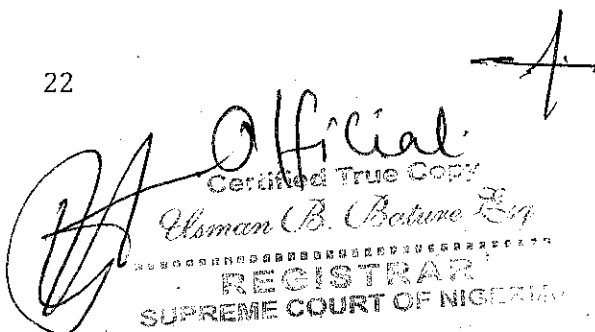 22
Official.
Certified True Copy
Usman B. Bature Esq
REGISTRAR
SUPREME COURT OF NIGERIA